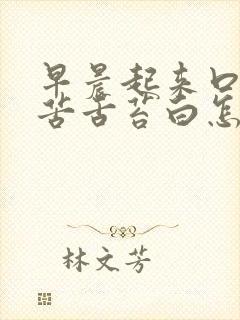 早晨起来口
苦舌苔白怎
林文芳